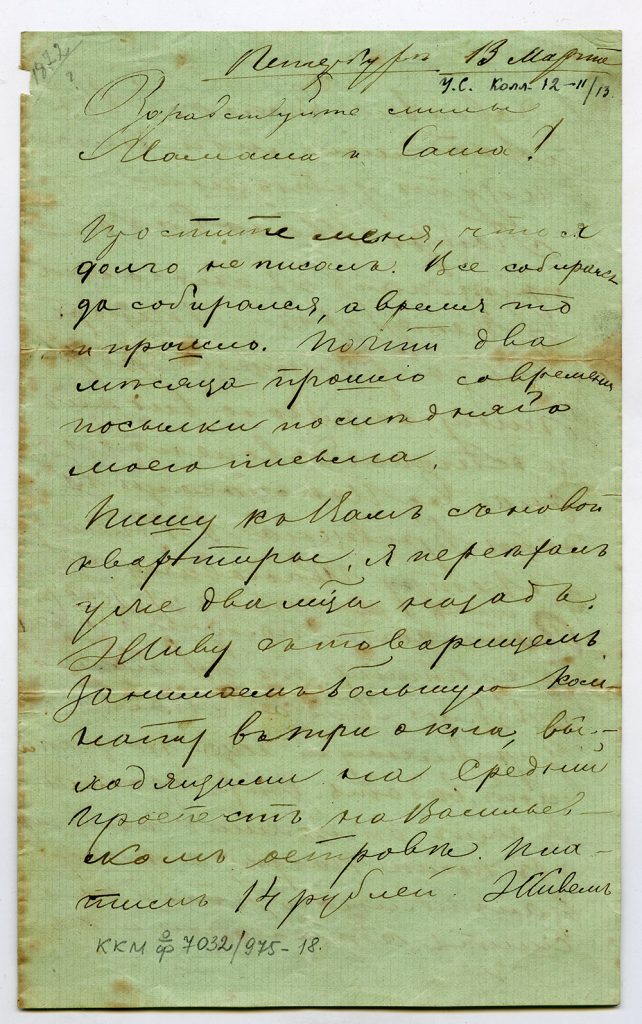 1872
?
Петербургъ 13 Марта
У.С. Колл. 12-11/13.
Здравствуйте милы
Мамаша и Саша!
Простите меня, что я
долго не писалъ. Все собирался
да собирался, а время то
и прошло. Почти два
мѣсяца прошло со времени
посылки послѣдняго
моего письма.
Пишу къ Вамъ съ новой
квартиры, я переѣхалъ
уже два мѣца назадъ.
Живу съ товарищемъ
занимаемъ большую ком
нату въ три окна, вы-
ходящими на Средній
проспектъ на Васильев-
скомъ островѣ. Пла-
тимъ 14 рублей. Живемъ
ККМ оф 7032/975-18.